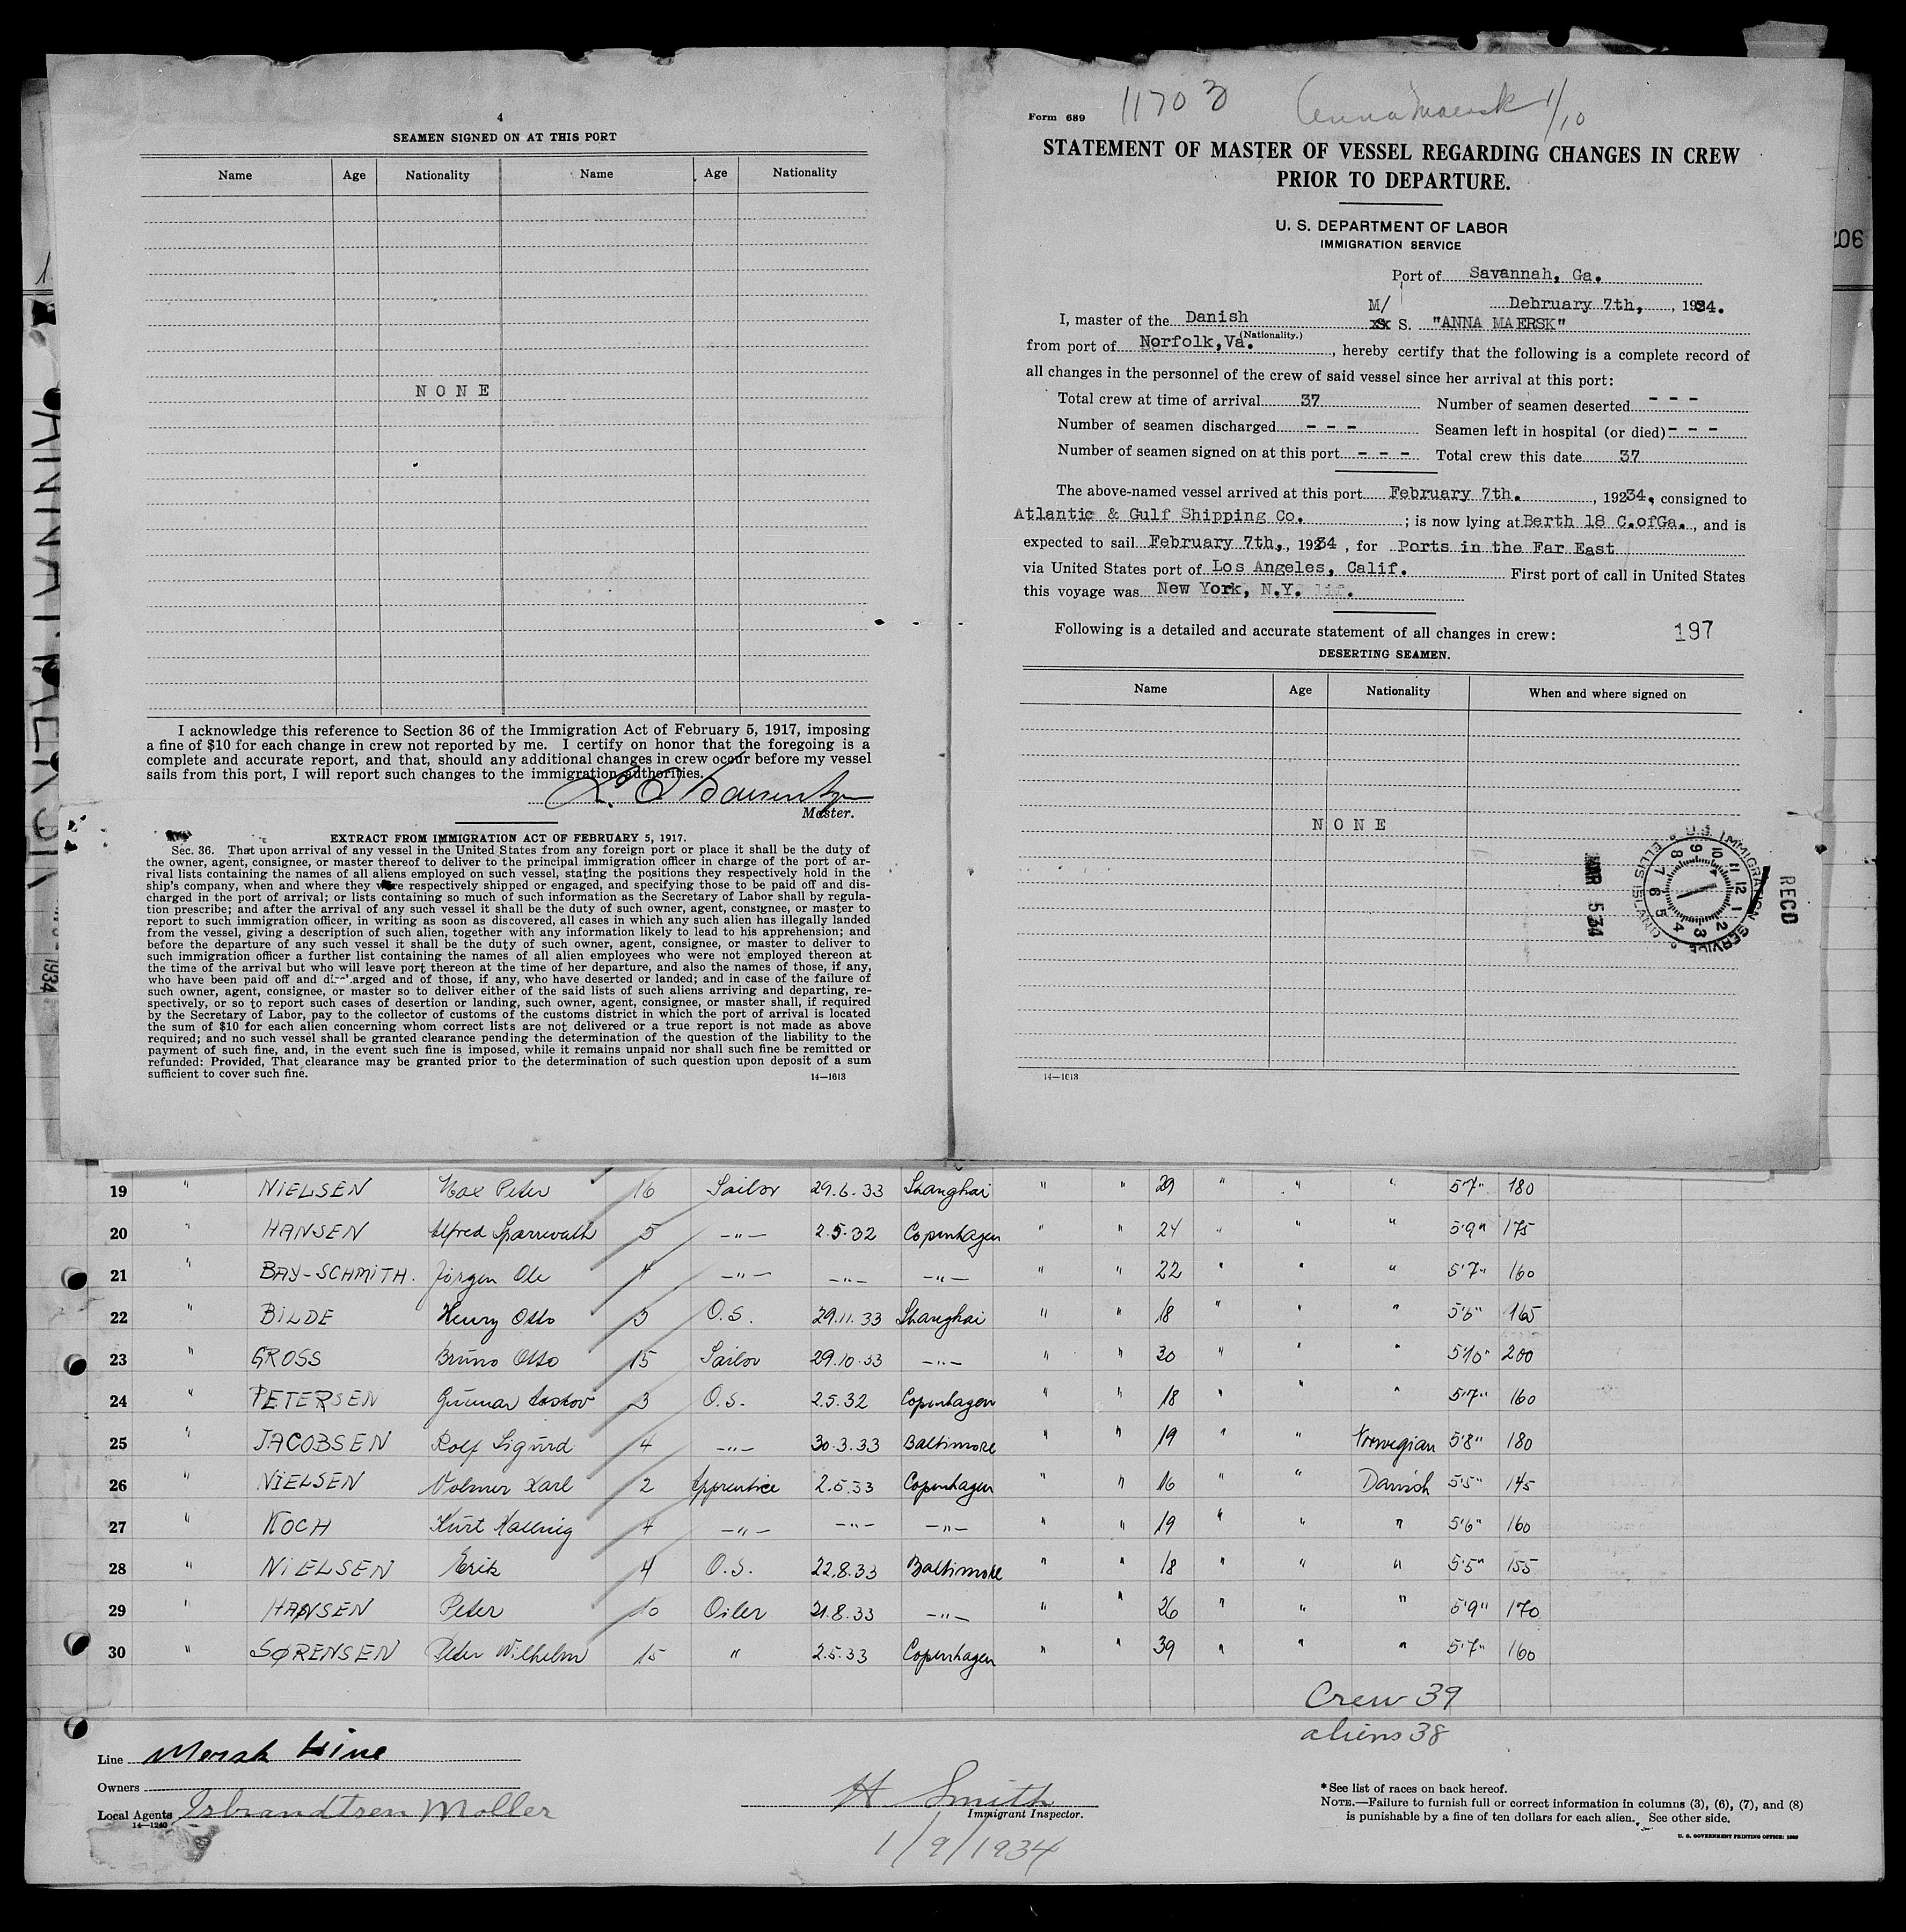 4
SEAMEN SIGNED ON AT THIS PORT
Name Age Nationality Name Age Nationality
NONE
I acknowledge this reference to Section 36 of the Immigration Act of February 5, 1917, imposing
a fine of $10 for each change in crew not reported by me. I certify on honor that the foregoing is a
complete and accurate report, and that, should any additional changes in crew occur before my vessel
sails from this port, I will report such changes to the immigration authorities.
Master.
EXTRACT FROM IMMIGRATION ACT OF FEBRUARY 5, 1917.
Sec. 36. That upon arrival of any vessel in the United States from any foreign port or place it shall be the duty of
the owner, agent, consignee, or master thereof to deliver to the principal immigration officer in charge of the port of ar-
rival lists containing the names of all aliens employed on such vessel, stating the positions they respectively hold in the
ship's company, when and where they were respectively shipped or engaged, and specifying those to be paid off and dis-
charged in the port of arrival; or lists containing so much of such information as the Secretary of Labor shall by regula-
tion prescribe; and after the arrival of any such vessel it shall be the duty of such owner, agent, consignee, or master to
report to such immigration officer, in writing as soon as discovered, all cases in which any such alien has illegally landed
from the vessel, giving a description of such alien, together with any information likely to lead to his apprehension; and
before the departure of any such vessel it shall be the duty of such owner, agent, consignee, or master to deliver to
such immigration officer a further list containing the names of all alien employees who were not employed thereon at
the time of the arrival but who will leave port thereon at the time of her departure, and also the names of those, if any,
who have been paid off and discharged and of those, if any, who have deserted or landed; and in case of the failure of
such owner, agent, consignee, or master so to deliver either of the said lists of such aliens arriving and departing, re-
spectively, or so to report such cases of desertion or landing, such owner, agent, consignee, or master shall, if required
by the Secretary of Labor, pay to the collector of customs of the customs district in which the port of arrival is located
the sum of $10 for each alien concerning whom correct lists are not delivered or a true report is not made as above
required; and no such vessel shall be granted clearance pending the determination of the question of the liability to the
payment of such fine, and, in the event such fine is imposed, while it remains unpaid nor shall such fine be remitted or
refunded: Provided, That clearance may be granted prior to the determination of such question upon deposit of a sum
sufficient to cover such fine.
14—1613
Form 689 11703 Anna Maersk 1/10
STATEMENT OF MASTER OF VESSEL REGARDING CHANGES IN CREW
PRIOR TO DEPARTURE.
U. S. DEPARTMENT OF LABOR
IMMIGRATION SERVICE
Port of Savannah, Ga.
Debruary 7th, , 1934.
I, master of the Danish M/ S. "ANNA MAERSK"
(Nationality.)
from port of Norfolk,Va. , hereby certify that the following is a complete record of
all changes in the personnel of the crew of said vessel since her arrival at this port:
Total crew at time of arrival 37 Number of seamen deserted - - -
Number of seamen discharged - - - Seamen left in hospital (or died) - - -
Number of seamen signed on at this port - - - Total crew this date 37
The above-named vessel arrived at this port February 7th. , 19234, consigned to
Atlantic & Gulf Shipping Co. ; is now lying at Berth 18 C.ofGa. , and is
expected to sail February 7th, , 19234 , for Ports in the Far East
via United States port of Los Angeles, Calif. First port of call in United States
this voyage was New York, N.Y.
Following is a detailed and accurate statement of all changes in crew: 197
DESERTING SEAMEN.
Name Age Nationality When and where signed on
NONE
RECD
U.S. IMMIGRATION SERVICE ELLIS ISLAND
12 1 2 3 4 5 6 7 8 9 10 11
MAR 5 34
14—1613
206
1934
19 " NIELSEN Max Peter 16 Sailor 29.6.33 Shanghai " " 29 " " " 5'7" 180
20 " HANSEN Alfred Sparrevath 5 —"— 2.5.32 Copenhagen " " 24 " " " 5'9" 175
21 " BAY-SCHMITH. Jörgen Ole 4 —"— —"— —"— " " 22 " " " 5'7" 160
22 " BILDE Henry Otto 3 O.S. 29.11.33 Shanghai " " 18 " " " 5'6" 165
23 " GROSS Bruno Otto 15 Sailor 29.10.33 —"— " " 30 " " " 5'10" 200
24 " PETERSEN Gunnar 3 O.S. 2.5.32 Copenhagen " " 18 " " " 5'7" 160
25 " JACOBSEN Rolf Sigurd 4 —"— 30.3.33 Baltimore " " 19 " " Norwegian 5'8" 180
26 " NIELSEN Volmer Karl 2 Apprentice 2.5.33 Copenhagen " " 16 " " Danish 5'5" 145
27 " KOCH Kurt 4 —"— —"— —"— " " 19 " " " 5'6" 160
28 " NIELSEN Erik 4 O.S. 22.8.33 Baltimore " " 18 " " " 5'5" 155
29 " HANSEN Peter 10 Oiler 21.8.33 —"— " " 26 " " " 5'9" 170
30 " SØRENSEN Peter Wilhelm 15 " 2.5.33 Copenhagen " " 39 " " " 5'7" 160
Crew 39
aliens 38
Line Mersk Line
Owners
Local Agents Isbrandtsen Moller
14—1240
H Smith
Immigrant Inspector.
1/9/1934
* See list of races on back hereof.
NOTE.—Failure to furnish full or correct information in columns (3), (6), (7), and (8)
is punishable by a fine of ten dollars for each alien. See other side.